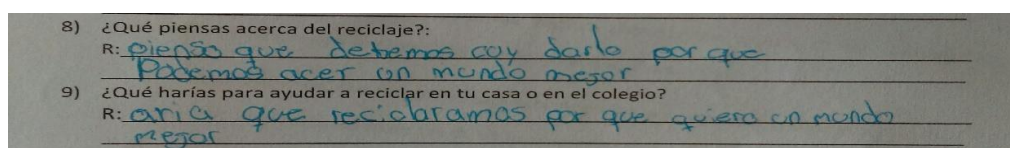 8) ¿Qué piensas acerca del reciclaje?:
R: pienso que debemos cuy darlo por que
Podemos acer un mundo mejor
9) ¿Qué harías para ayudar a reciclar en tu casa o en el colegio?
R: aria que reciclaramos por que quiero un mundo
mejor